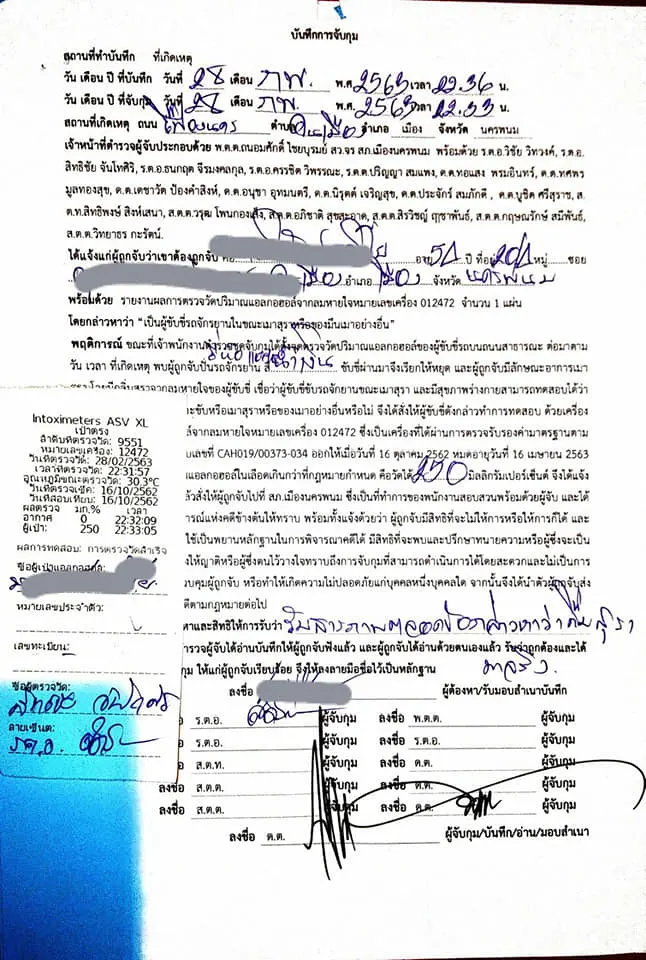 บันทึกการจับกุม
สถานที่ทำบันทึก ที่เกิดเหตุ
วัน เดือน ปี ที่บันทึก วันที่ 28 เดือน กพ. พ.ศ. 2563 เวลา 22.36 น.
วัน เดือน ปี ที่จับกุม วันที่ 28 เดือน กพ. พ.ศ. 2563 เวลา 22.33 น.
สถานที่เกิดเหตุ ถนน เฟื่องนคร ตำบล ในเมือง อำเภอ เมือง จังหวัด นครพนม
เจ้าหน้าที่ตำรวจผู้จับประกอบด้วย พ.ต.ต.ถนอมศักดิ์ ไชยบุรมย์ สว.จร สภ.เมืองนครพนม พร้อมด้วย ร.ต.อ.วิชัย วิทวงค์, ร.ต.อ.
สิทธิชัย จันโทศิริ, ร.ต.อ.ธนกฤต จีรมงคลกุล, ร.ต.อ.ครรชิต วิพรรณะ, ร.ต.ต.ปริญญา สมแพง, ด.ต.ทองแสง พรมอินทร์, ด.ต.ทศพร
มูลทองสุข, ด.ต.เดชาวัต ป้องคำสิงห์, ด.ต.อนุชา อุทมนตรี, ด.ต.นิรุตต์ เจริญสุข, ด.ต.ประจักร์ สมภักดี , ด.ต.บูชิต ศรีสุราช, ส.
ต.ท.สิทธิพงษ์ สิงห์เสนา, ส.ต.ต.วรุฒ โพนกองเส็ง, ส.ต.ต.อภิชาติ สุขสะอาด, ส.ต.ต.สิรวิชญ์ ฤๅชาพันธ์, ส.ต.ต.กฤษณรักษ์ สมีพันธ์,
ส.ต.ต.วิทยาธร กะรัตน์.
ได้แจ้งแก่ผู้ถูกจับว่าเขาต้องถูกจับ คือ อายุ 51 ปี ที่อยู่ 201 หมู่ ซอย
เมือง อำเภอ เมือง จังหวัด นครพนม
พร้อมด้วย รายงานผลการตรวจวัดปริมาณแอลกอฮอล์จากลมหายใจหมายเลขเครื่อง 012472 จำนวน 1 แผ่น
โดยกล่าวหาว่า "เป็นผู้ขับขี่รถจักรยานในขณะเมาสุราหรือของมึนเมาอย่างอื่น"
พฤติการณ์ ขณะที่เจ้าพนักงานตำรวจชุดจับกุมได้ตั้งจุดตรวจวัดปริมาณแอลกอฮอล์ของผู้ขับขี่รถบนถนนสาธารณะ ต่อมาตาม
วัน เวลา ที่เกิดเหตุ พบผู้ถูกจับปั่นรถจักรยาน สี น้ำเงิน ขับขี่ผ่านมาจึงเรียกให้หยุด และผู้ถูกจับมีลักษณะอาการเมา
สุราโดยมีกลิ่นสุราจากลมหายใจของผู้ขับขี่ เชื่อว่าผู้ขับขี่ขับรถจักรยานขณะเมาสุรา และมีสุขภาพร่างกายสามารถทดสอบได้ว่า
ะขับหรือเมาสุราหรือของเมาอย่างอื่นหรือไม่ จึงได้สั่งให้ผู้ขับขี่ดังกล่าวทำการทดสอบ ด้วยเครื่อง
ล์จากลมหายใจหมายเลขเครื่อง 012472 ซึ่งเป็นเครื่องที่ได้ผ่านการตรวจรับรองค่ามาตรฐานตาม
บเลขที่ CAH019/00373-034 ออกให้เมื่อวันที่ 16 ตุลาคม 2562 หมดอายุวันที่ 16 เมษายน 2563
แอลกอฮอล์ในเลือดเกินกว่าที่กฎหมายกำหนด คือวัดได้ 250 มิลลิกรัมเปอร์เซ็นต์ จึงได้แจ้ง
ล้วสั่งให้ผู้ถูกจับไปที่ สภ.เมืองนครพนม ซึ่งเป็นที่ทำการของพนักงานสอบสวนพร้อมด้วยผู้จับ และได้
ารณ์แห่งคดีข้างต้นให้ทราบ พร้อมทั้งแจ้งด้วยว่า ผู้ถูกจับมีสิทธิที่จะไม่ให้การหรือให้การก็ได้ และ
ใช้เป็นพยานหลักฐานในการพิจารณาคดีได้ มีสิทธิที่จะพบและปรึกษาทนายความหรือผู้ซึ่งจะเป็น
งให้ญาติหรือผู้ซึ่งตนไว้วางใจทราบถึงการจับกุมที่สามารถดำเนินการได้โดยสะดวกและไม่เป็นการ
วบคุมผู้ถูกจับ หรือทำให้เกิดความไม่ปลอดภัยแก่บุคคลหนึ่งบุคคลใด จากนั้นจึงได้นำตัวผู้ถูกจับส่ง
ดีตามกฎหมายต่อไป
หาและสิทธิให้การรับว่า รับสารภาพตลอดข้อกล่าวหาว่า ดื่มสุรา
ำรวจผู้จับได้อ่านบันทึกให้ผู้ถูกจับฟังแล้ว และผู้ถูกจับได้อ่านด้วยตนเองแล้ว รับว่าถูกต้องและได้
กุม ให้แก่ผู้ถูกจับเรียบร้อย จึงให้ลงลายมือชื่อไว้เป็นหลักฐาน มาจริง
ลงชื่อ ผู้ต้องหา/รับมอบสำเนาบันทึก
อ ร.ต.อ. ผู้จับกุม ลงชื่อ พ.ต.ต. ผู้จับกุม
อ ร.ต.อ. ผู้จับกุม ลงชื่อ ร.ต.อ. ผู้จับกุม
อ ส.ต.ท. ผู้จับกุม ลงชื่อ ด.ต. ผู้จับกุม
ลงชื่อ ส.ต.ต. ผู้จับกุม ลงชื่อ ด.ต. ผู้จับกุม
ลงชื่อ ส.ต.ต. ผู้จับกุม ลงชื่อ ด.ต. ผู้จับกุม
ลงชื่อ ด.ต. ผู้จับกุม/บันทึก/อ่าน/มอบสำเนา
Intoximeters ASV XL
เป่าตรง
ลำดับที่ตรวจวัด: 9551
หมายเลขเครื่อง: 12472
วันที่ตรวจวัด: 28/02/2563
เวลาที่ตรวจวัด: 22:31:57
อุณหภูมิขณะตรวจวัด: 30.3°C
วันที่ตรวจเช็ค: 16/10/2562
วันที่สอบเทียบ: 16/10/2562
ผลตรวจ มก.% เวลา
อากาศ 0 22:32:09
ผู้เป่า: 250 22:33:05
ผลการทดสอบ: การตรวจวัดสำเร็จ
ชื่อผู้เป่าแอลกอฮอล์
หมายเลขประจำตัว:
เลขทะเบียน:
ชื่อผู้ตรวจวัด:
ลายเซ็นต์:
ร.ต.อ.